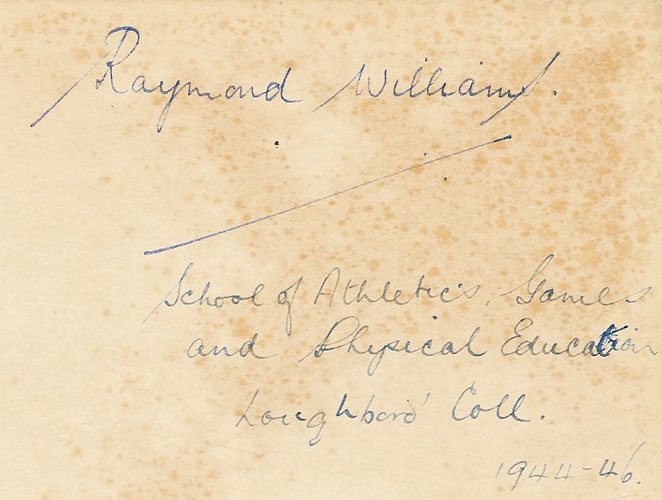 Raymond Williams.
School of Athletics, Games
and Physical Education
Loughboro' Coll.
1944-46.